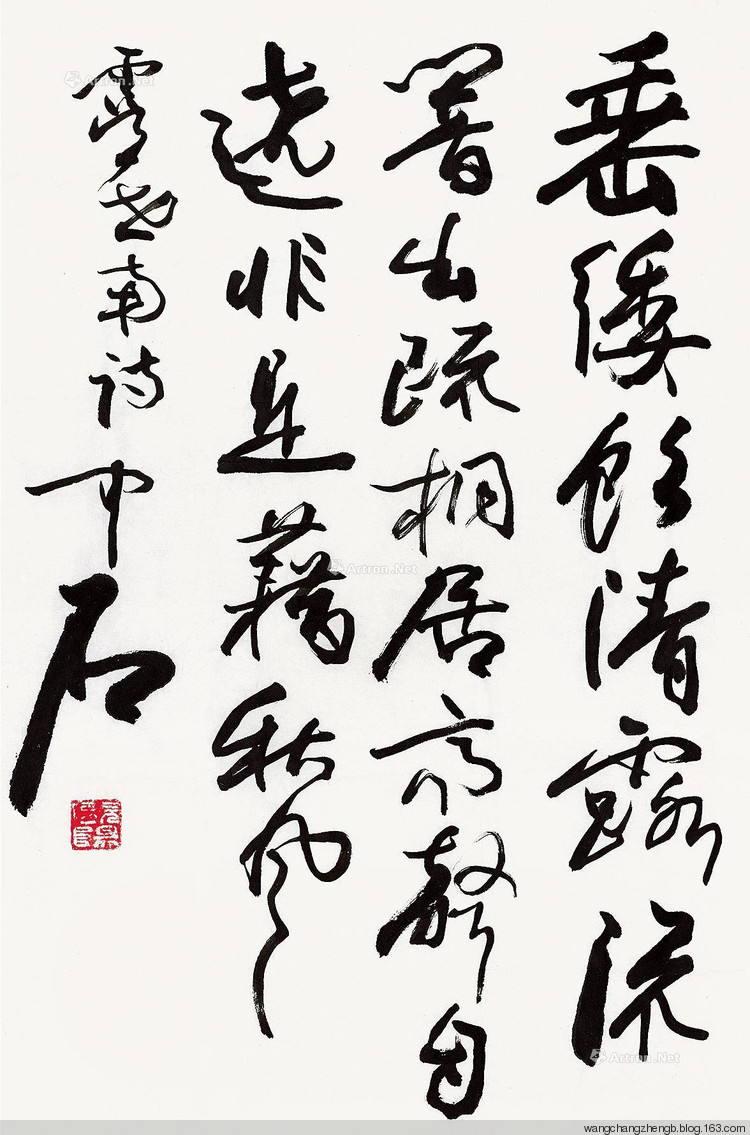 垂緌飲清露流
響出疏桐居高聲自
遠非是藉秋風
虞世南詩 中石
Artron.Net
Artron.Net
Artron.Net
wangchangzhengb.blog.163.com